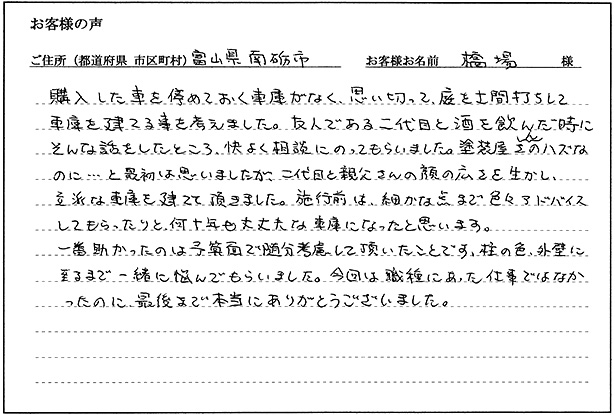 お客様の声
ご住所（都道府県 市区町村）富山県南砺市 お客様お名前 橋場 様
購入した車を停めておく車庫がなく、思い切って、庭を土間打ちして
車庫を建てる事を考えました。友人である二代目と酒を飲んだ時に
そんな話をしたところ、快よく相談にのってもらいました。塗装屋さんのハズな
のに…と最初は思いましたが、二代目と親父さんの顔の広さを生かし、
立派な車庫を建てて頂きました。施行前は、細かな点まで色々アドバイス
してもらったりと、何十年も大丈夫な車庫になったと思います。
一番助かったのは予算面で随分考慮して頂いたことです。柱の色、外壁に
至るまで一緒に悩んでもらいました。今回は職種にあった仕事ではなか
ったのに、最後まで本当にありがとうございました。